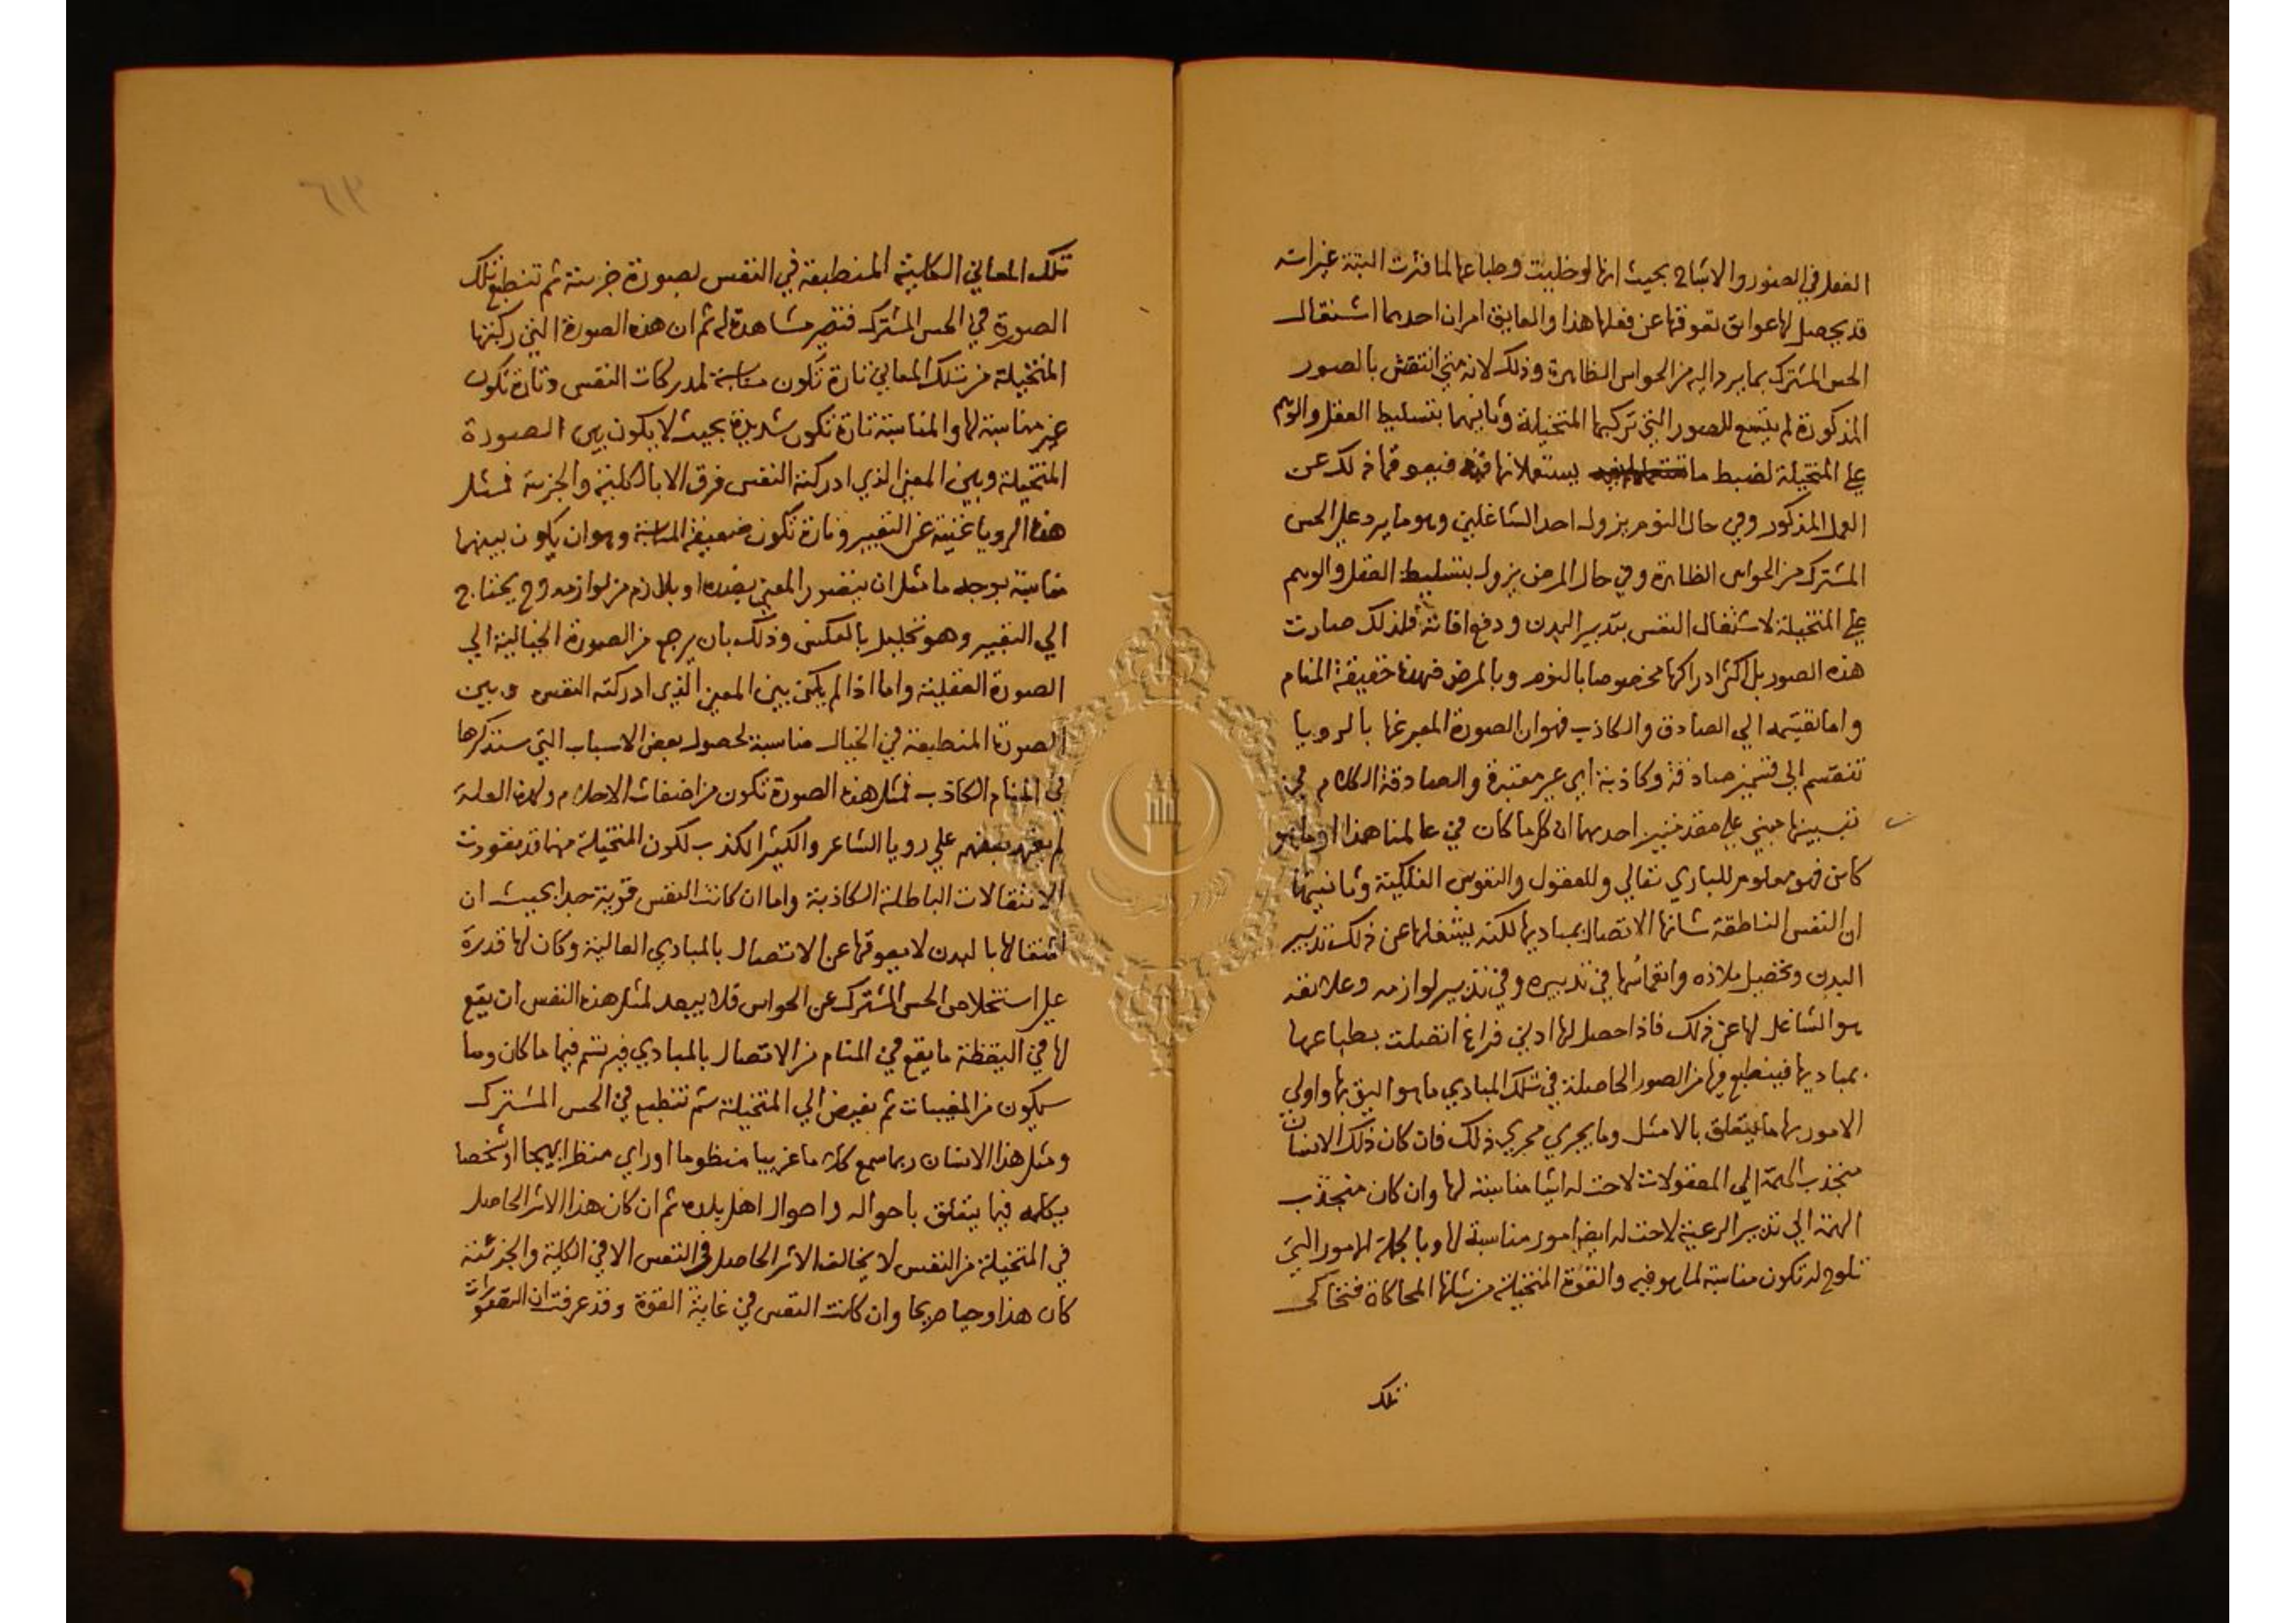 الفعل في الصور والاشباح بحيث انها لو خليت وطباعها لما فترت البتة غير انه
قد يحصل لها عوايق تعوقها عن فعلها هذا والعايق امران احدهما اشتغال
الحس المشترك بما يرد اليه من الحواس الظاهرة وذلك لانه متي انتقش بالصور
المذكورة لم يتسع للصور التي تركبها المتخيلة وثانيهما بتسليط العقل والوهم
علي المتخيلة لضبط ما يستعملانها فيه فيعوقها ذلك عن
العمل المذكور وفي حال النوم يزول احد الشاغلين وهو ما يرد علي الحس
المشترك من الحواس الظاهرة وفي حال المرض يزول بتسليط العقل والوهم
علي المتخيلة لاشتغال النفس بتدبير البدن ودفع افاته فلذلك صارت
هذه الصور بل اكثر ادراكها مخصوصا بالنوم وبالمرض فهذه حقيقة المنام
واما تقسيمه الي الصادق والكاذب فهو ان الصورة المعبر عنها بالرويا
تنقسم الي قسمين صادقة وكاذبة اي غير معتبرة والصادقة الكلام في
تبيينها مبني علي مقدمتين احدهما ان كل ما كان في عالمنا هذا او ما هو
كاين فهو معلوم للباري تعالي وللعقول والنفوس الفلكية وثانيتها
ان النفس الناطقة شانها الاتصال بمباديها لكنه يشغلها عن ذلك تدبير
البدن وتحصيل ملاذه وانغماسها في تدبيره وفي تدبير لوازمه وعلائقه
هو الشاغل لها عن ذلك فاذا حصل لها ادني فراغ اتصلت بطباعها
بمباديها فينطبع فيها من الصور الحاصلة في تلك المبادي ما هو اليق بها واولي
الامور بها ما يتعلق بالامثل وما يجري مجري ذلك فان كان ذلك الانسان
منجذب الهمة الي المعقولات لاحت له اشيا مناسبة لها وان كان منجذب
الهمة الي تدبير الرعية لاحت له ايضا امور مناسبة لها وبالجملة الامور التي
تلوح له تكون مناسبة لما هو فيه والقوة المتخيلة من شانها المحاكاة فتحاكي
تلك
٦٣
تلك المعاني الكلية المنطبعة في النفس بصورة جزيئة ثم تنطبع تلك
الصورة في الحس المشترك فتصير مشاهدة له ثم ان هذه الصورة التي ركبتها
المتخيلة من تلك المعاني تارة تكون مناسبة لمدركات النفس وتارة تكون
غير مناسبة لها والمناسبة تارة تكون شديدة بحيث لا يكون بين الصورة
المتخيلة وبين المعني الذي ادركته النفس فرق الا بالكلية والجزية فمثل
هذه الرويا غنية عن التعبير وتارة تكون ضعيفة المناسبة وهو ان يكون بينهما
مناسبة بوجه ما مثل ان يتصور المعني بضده او بلازم من لوازمه وح يحتاج
الي التعبير وهو تحليل بالعكس وذلك بان يرجع من الصورة الخيالية الي
الصورة العقلية واما اذا لم يكن بين المعني الذي ادركته النفس وبين
الصورة المنطبعة في الخيال مناسبة لحصول بعض الاسباب التي سنذكرها
في المنام الكاذب فمثل هذه الصورة تكون من اضغاث الاحلام ولهذه العلة
لم يعتمد بعضهم علي رويا الشاعر والكثير الكذب لكون المتخيلة منها قد تعودت
الانتقالات الباطلة الكاذبة واما ان كانت النفس قوية جدا بحيث ان
اشتغالها بالبدن لا يعوقها عن الاتصال بالمبادي العالية وكان لها قدرة
علي استخلاص الحس المشترك عن الحواس فلا يبعد لمثل هذه النفس ان يقع
لها في اليقظة ما يقع في المنام من الاتصال بالمبادي فيرتسم فيها ما كان وما
سيكون من المغيبات ثم يفيض الي المتخيلة ثم تنطبع في الحس المشترك
ومثل هذا الانسان ربما سمع كلاما غريبا منظوما او راي منظرا بهيجا او شخصا
يكلمه فيما يتعلق باحواله واحوال اهل بلده ثم ان كان هذا الاثر الحاصل
في المتخيلة من النفس لا يخالف الاثر الحاصل في النفس الا في الكلية والجزئية
كان هذا وحيا صريحا وان كانت النفس في غاية القوة وقد عرفت ان التصورات